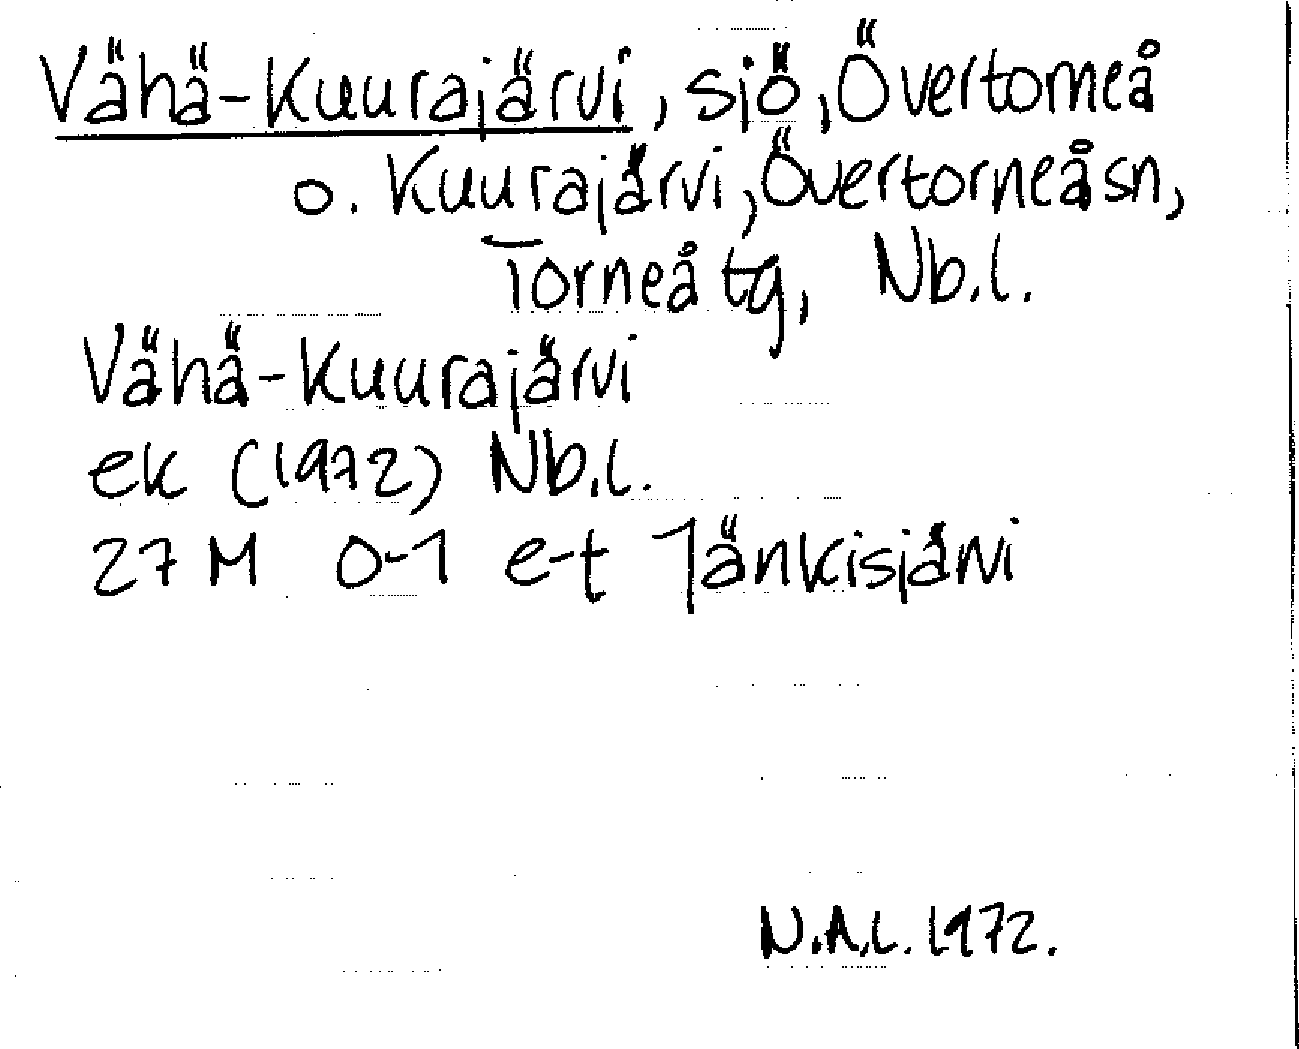 Vähä-Kuurajärvi, sjö, Övertorneå
o. Kuurajärvi, Övertorneå sn,
Torneå tg, Nb.l.
Vähä-Kuurajärvi
ek (1972) Nb.l.
27 M 0-1 e-t Jänkisjärvi
N.A.L. 1972.